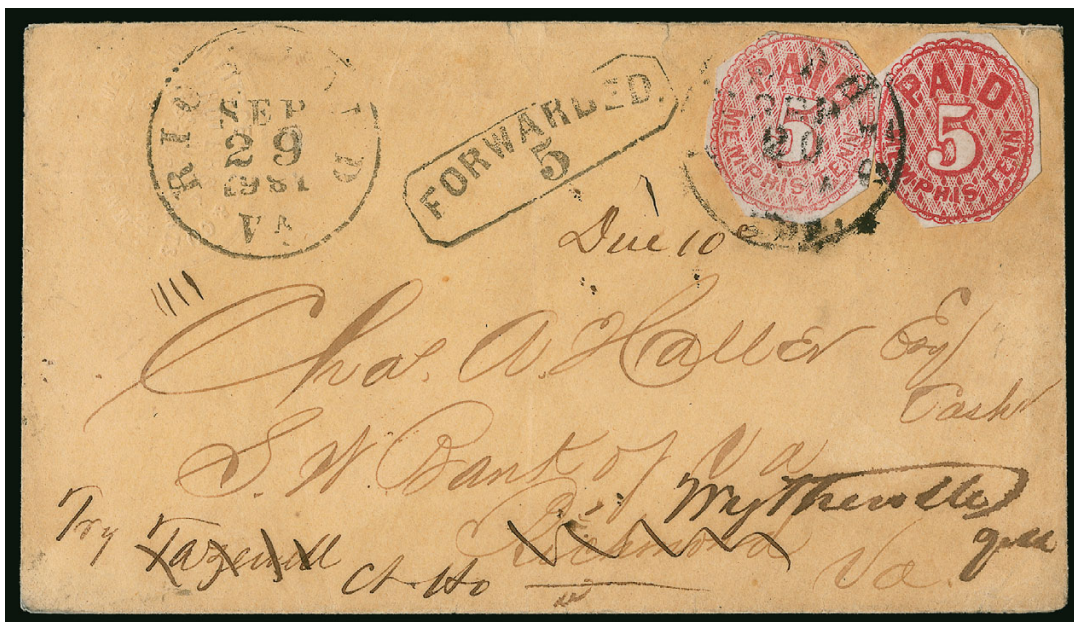 RICHMOND
SEP
29
1861
VA
FORWARDED.
5
PAID
5
MEMPHIS TENN
PAID
5
MEMPHIS TENN
20
Due 10c
Chas. A. Haller Esq
Cashr
S. W. Bank of Va
Wytheville
Richmond
Va.
Try Tazewell
Ct. Ho